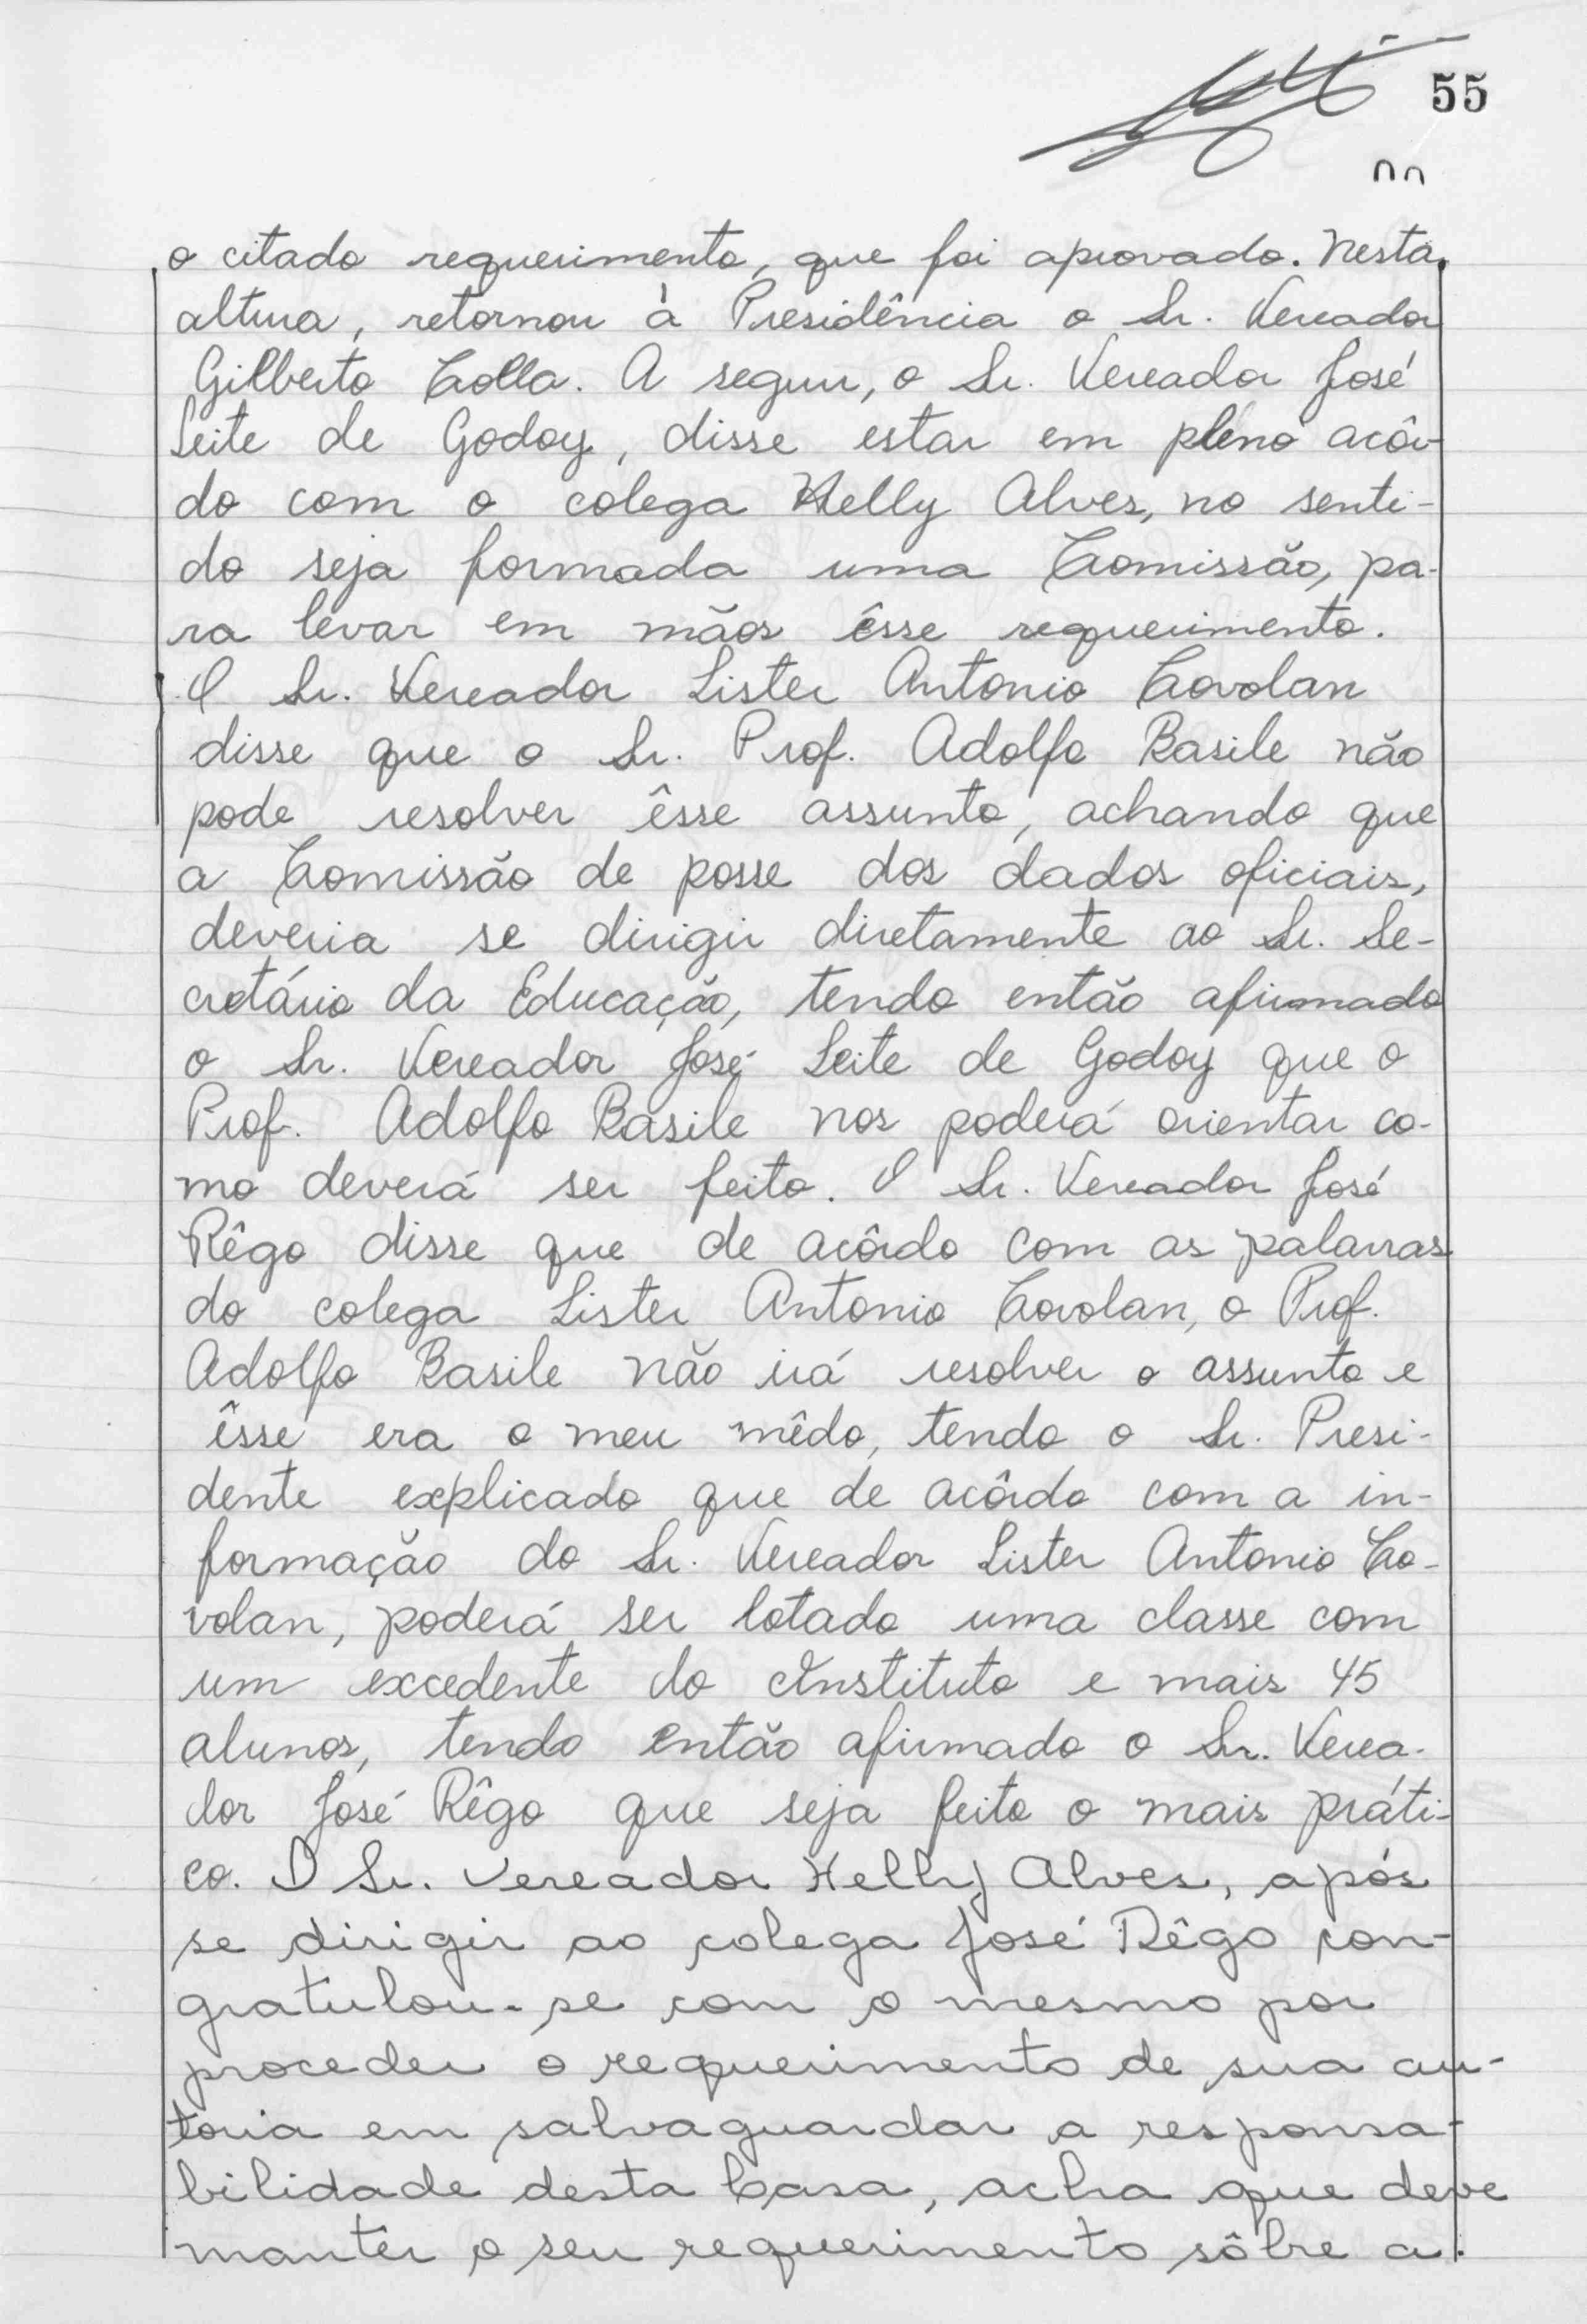 55
o citado requerimento, que foi aprovado. Nesta
altura, retornou à Presidência o Sr. Vereador
Gilberto Colla. A seguir, o Sr. Vereador José
Leite de Godoy, disse estar em pleno acôr-
do com o colega Helly Alves, no senti-
do seja formada uma Comissão, pa-
ra levar em mãos êsse requerimento.
O Sr. Vereador Lister Antonio Covolan
disse que o Sr. Prof. Adolfo Basile não
pode resolver êsse assunto, achando que
a Comissão de posse dos dados oficiais,
deveria se dirigir diretamente ao Sr. Se-
cretário da Educação, tendo então afirmado
o Sr. Vereador José Leite de Godoy que o
Prof. Adolfo Basile nos poderá orientar co-
mo deverá ser feito. O Sr. Vereador José
Rêgo disse que de acôrdo com as palavras
do colega Lister Antonio Covolan, o Prof.
Adolfo Basile não irá resolver o assunto e
êsse era o meu mêdo, tendo o Sr. Presi-
dente explicado que de acôrdo com a in-
formação do Sr. Vereador Lister Antonio Co-
volan, poderá ser lotado uma classe com
um excedente do Instituto e mais 45
alunos, tendo então afirmado o Sr. Verea-
dor José Rêgo que seja feito o mais práti-
co. O Sr. Vereador Helly Alves, após
se dirigir ao colega José Rêgo con-
gratulou-se com o mesmo por
proceder o requerimento de sua au-
toria em salvaguardar a responsa-
bilidade desta Casa, acha que deve
manter o seu requerimento sôbre a